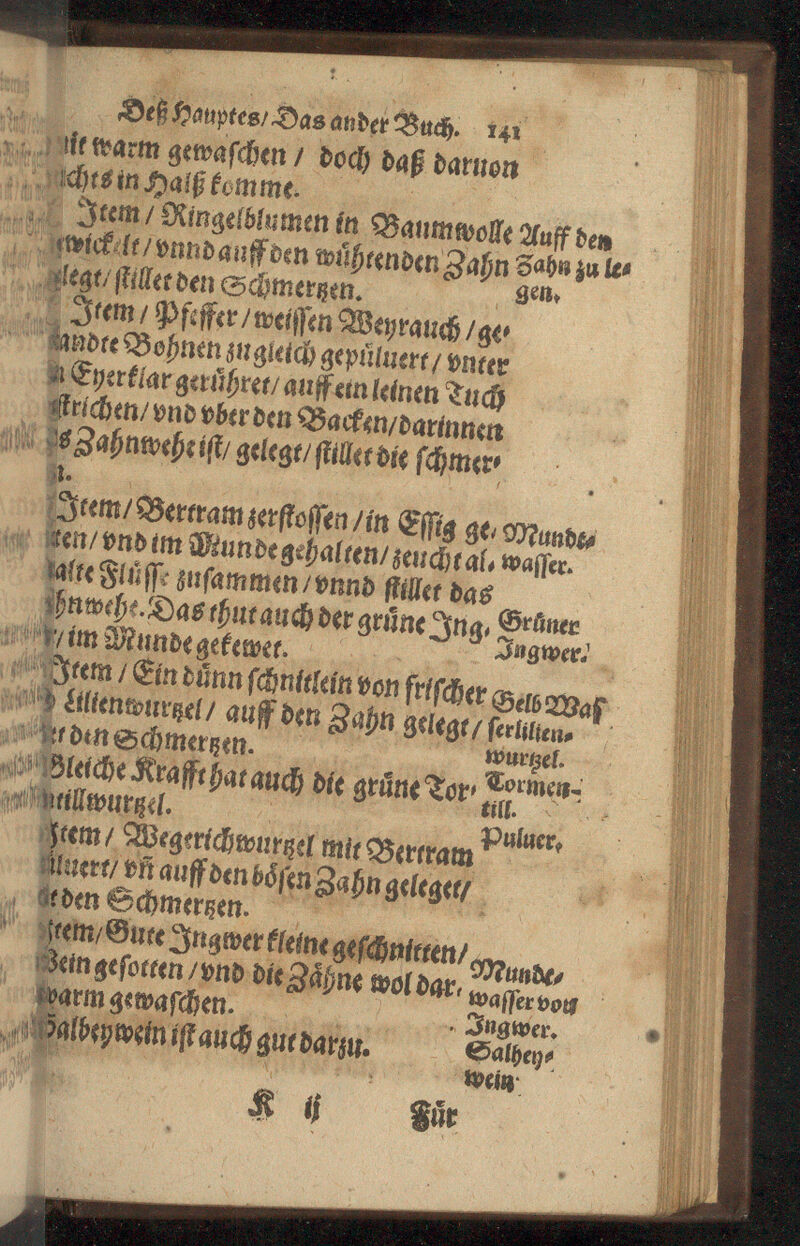 Deß Hauptes/ Das ander Buch. 141
warm gewaſchen / doch daß daruon
in Halß komme.
Item / Ringelblumen in Baumwolle
vnnd auff den wuͤhtenden Zahn
ſtillet den Schmertzen.
Auff den
Zahn zu le⸗
gen.
Item / Pfeffer / weiſſen Weyrauch / ge⸗
Bohnen zugleich gepuͤluert / vnter
Eyerklar geruͤhret / auff ein leinen Tuch
vnd vber den Backen / darinnen
Zahnwehe iſt / gelegt / ſtillet die ſchmer⸗
Item / Bertram zerſtoſſen / in Eſſig ge⸗
vnd im Munde gehalten / zeucht al⸗
Fluͤſſe zuſammen / vnnd ſtillet das
Das thut auch der gruͤne Ing⸗
im Munde gekewet.
Munde⸗
waſſer.
Gruͤner
Ingwer.
Item / Ein duͤnn ſchnitlein von friſcher
Lilienwurtzel / auff den Zahn gelegt /
den Schmertzen.
Gelb Waſ⸗
ſerlilien⸗
wurtzel.
Gleiche Krafft hat auch die gruͤne Tor⸗
Tormen⸗
till.
Item / Wegerichwurtzel mit Bertram
vñ auff den boͤſen Zahn geleget /
den Schmertzen.
Puluer.
Item / Gute Ingwer kleine geſchnitten /
geſotten / vnd die Zaͤhne wol dar⸗
warm gewaſchen.
Munde⸗
waſſer von
Ingwer.
Salbeywein iſt auch gut darzu.
Salbey⸗
wein
K ij Fuͤr